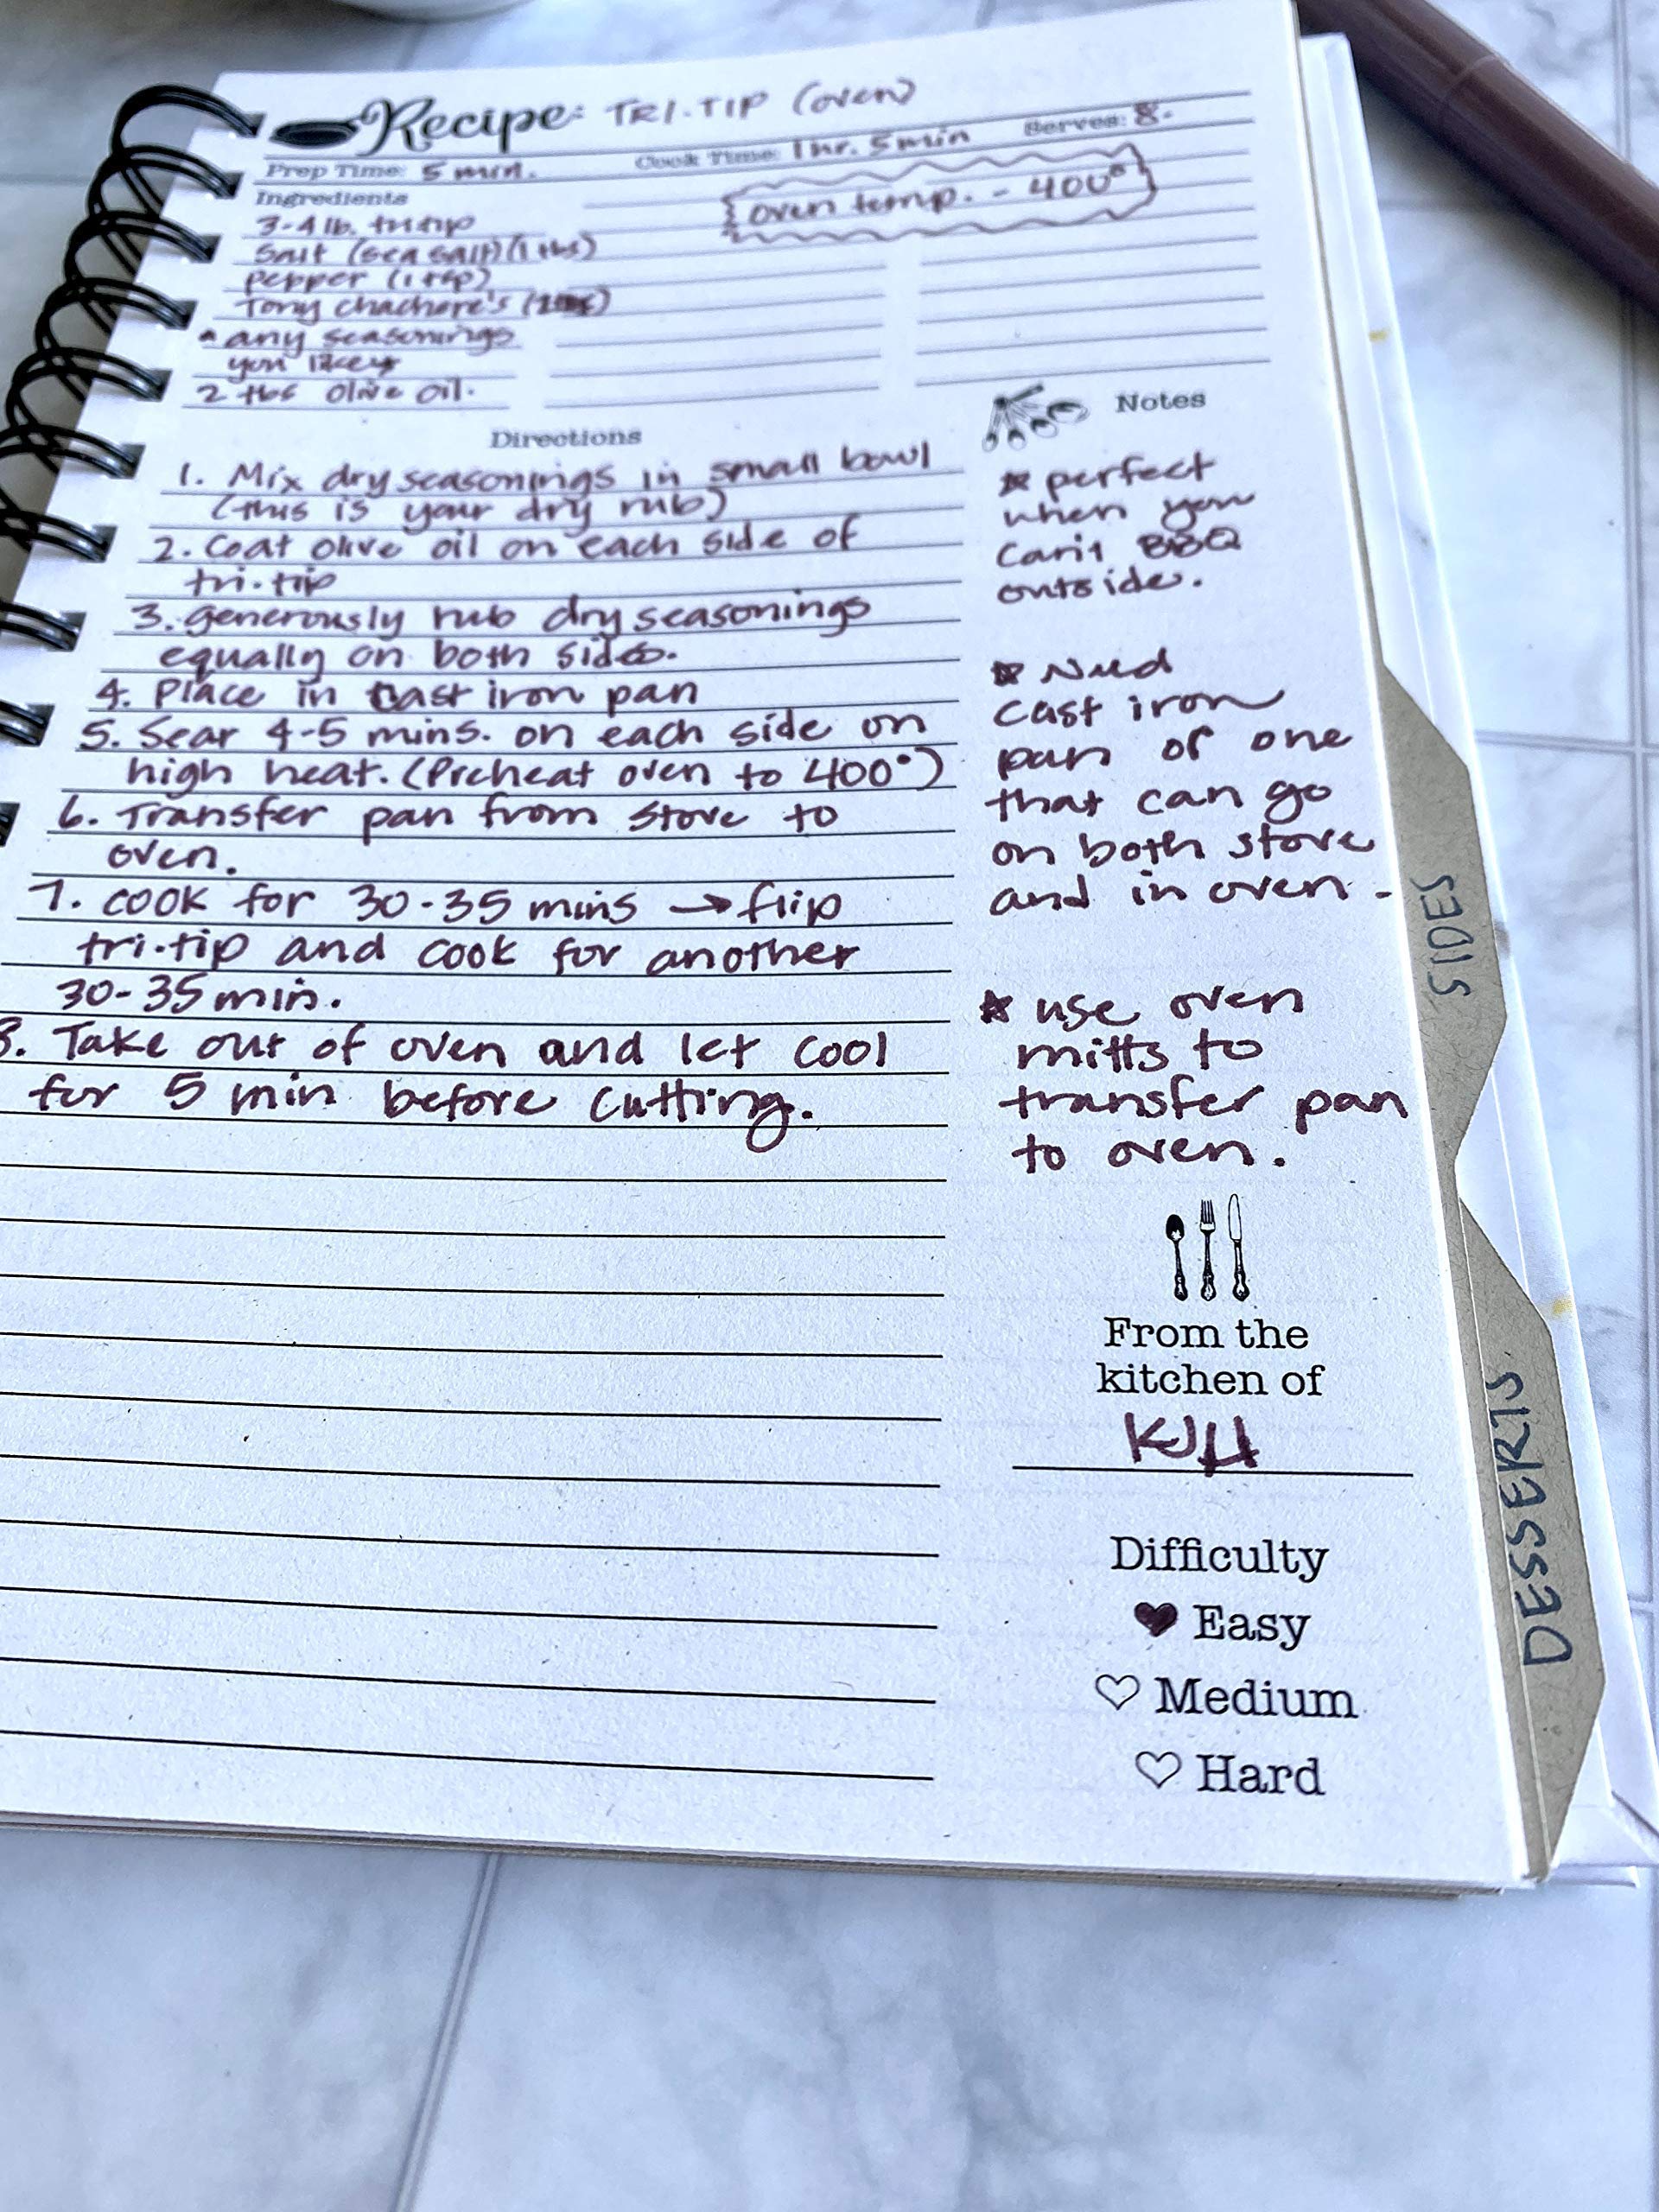 Recipe: TRI-TIP (oven)
Prep Time: 5 min. Cook Time: 1 hr. 5 min Serves: 8.
Ingredients
oven temp. - 400°
3-4 lb. tritip
Salt (sea salt) (1 tbs)
pepper (1 tsp)
Tony chachere's
any seasonings
you like
2 tbs olive oil.
Directions
1. Mix dry seasonings in small bowl
(this is your dry rub)
2. Coat olive oil on each side of
tri-tip
3. generously rub dry seasonings
equally on both sides.
4. Place in cast iron pan
5. Sear 4-5 mins. on each side on
high heat. (Preheat oven to 400°)
6. Transfer pan from stove to
oven.
7. cook for 30-35 mins → flip
tri-tip and cook for another
30-35 min.
8. Take out of oven and let cool
for 5 min before cutting.
Notes
☆ perfect
when you
can't BBQ
outside.
☆ Need
cast iron
pan or one
that can go
on both stove
and in oven -
☆ use oven
mitts to
transfer pan
to oven.
From the
kitchen of
KJH
Difficulty
Easy
Medium
Hard
SIDES
DESSERTS